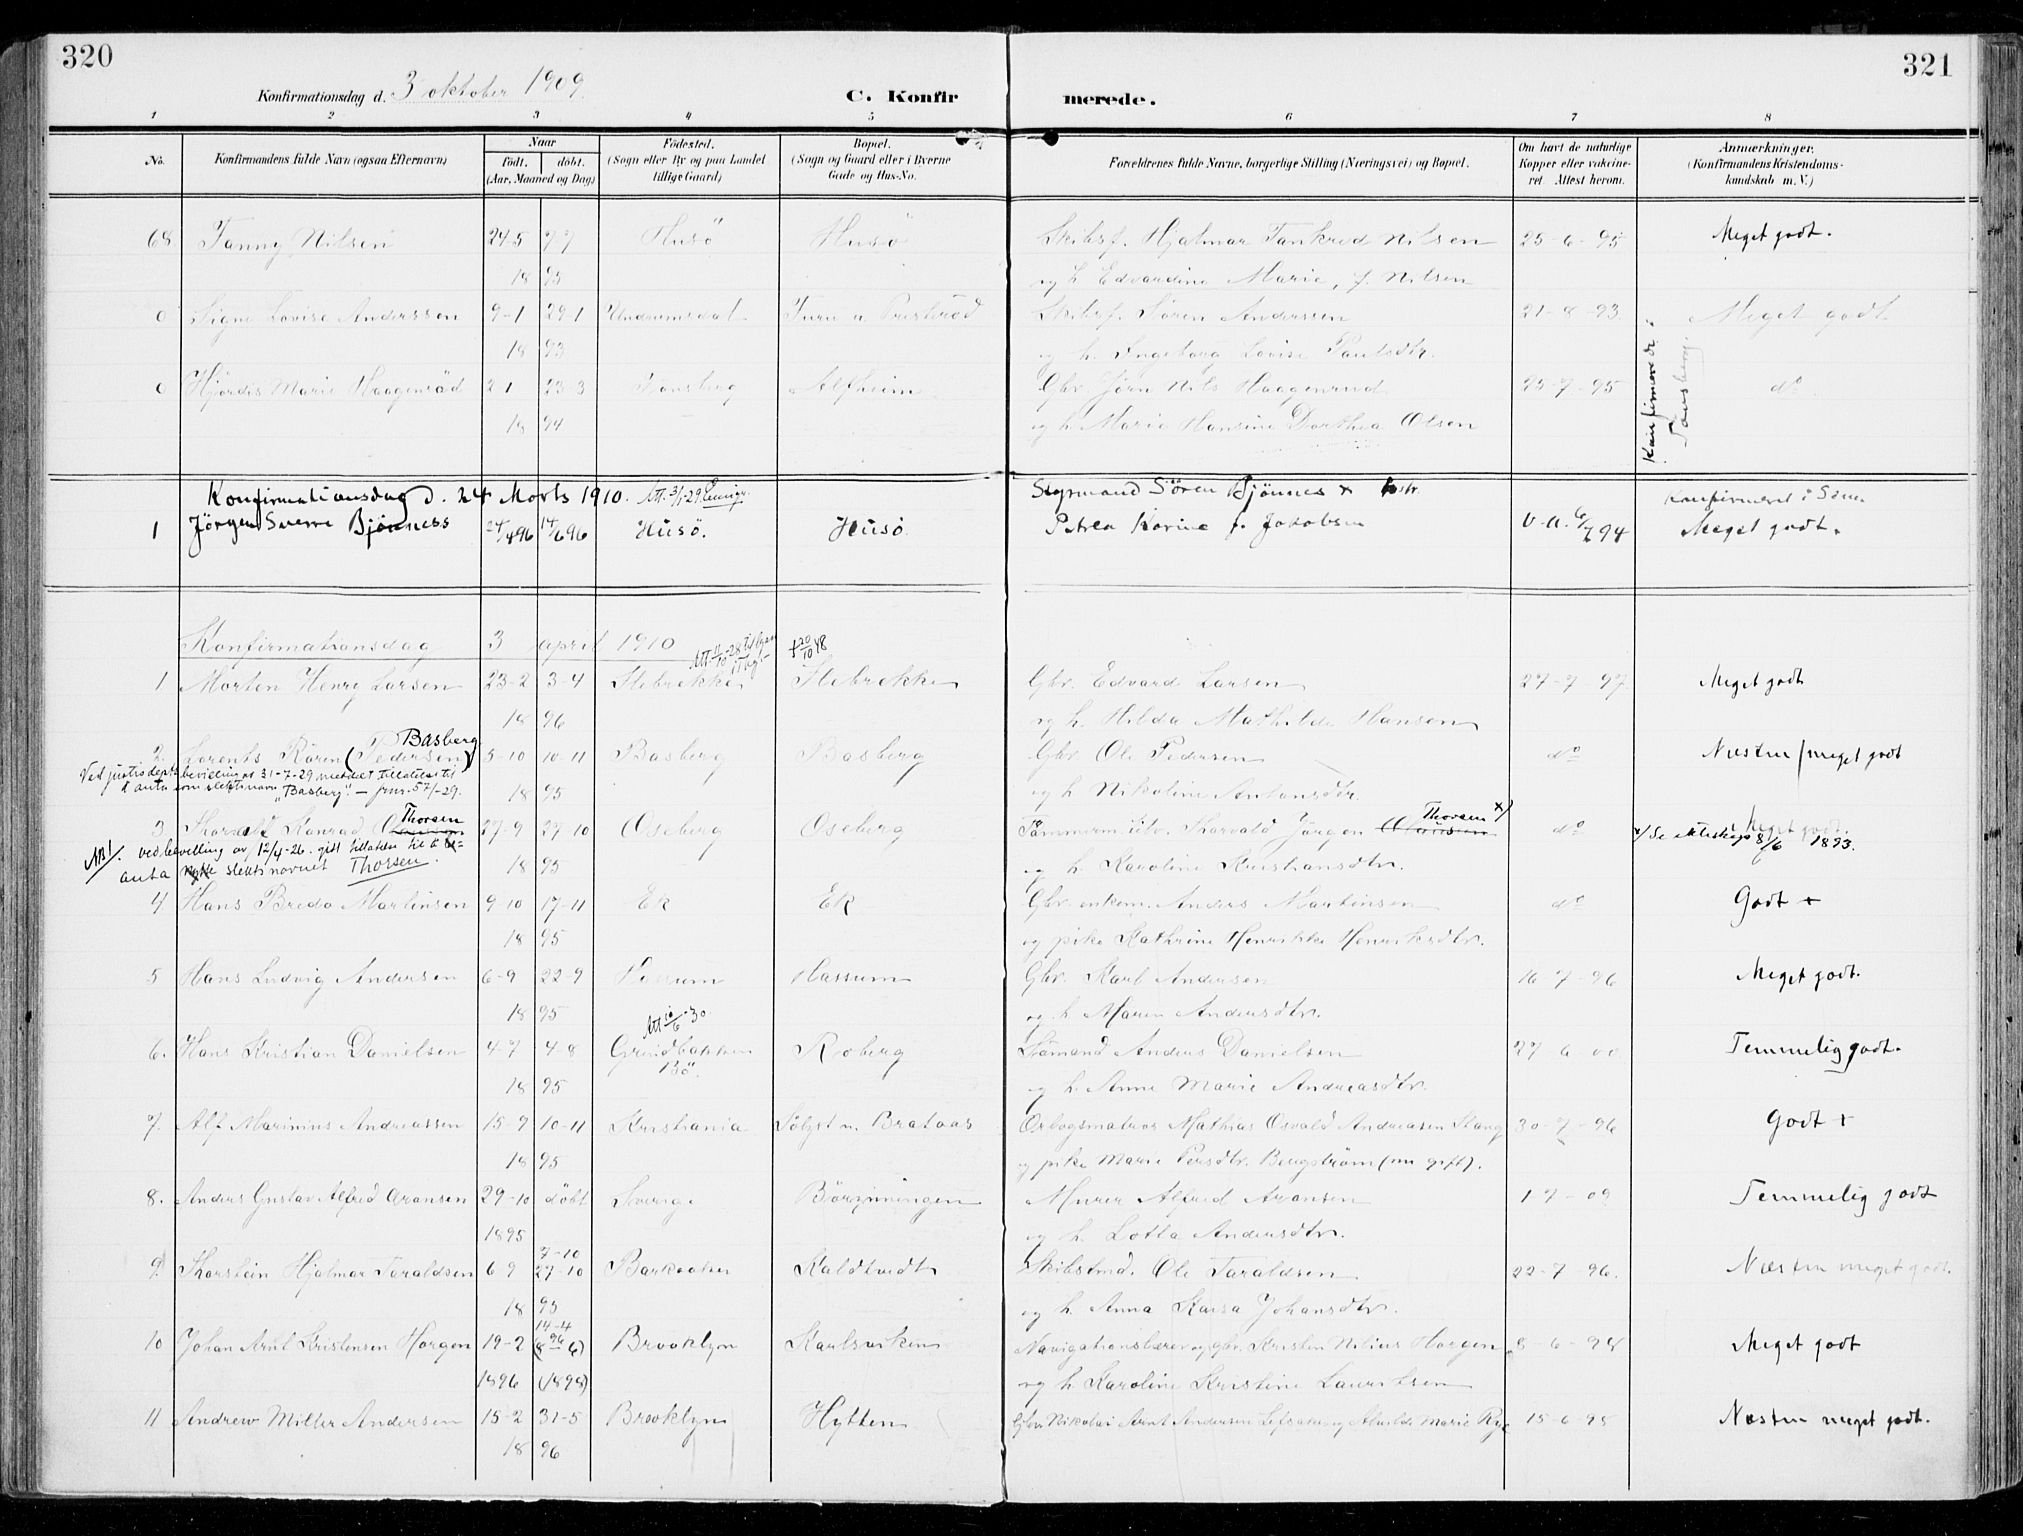 320
321
Konfirmationsdag d. 3 oktober 1909.
C. Konfir merede.
1 2 3 4 5 6 7 8
No. Konfirmandens fulde Navn (ogsaa Efternavn) Naar født. døbt. (Aar, Maaned og Dag) Fødested. (Sogn eller By og paa Landet tillige Gaard) Bopæl. (Sogn og Gaard eller i Byerne Gade og Hus-No. Forældrenes fulde Navne, borgerlige Stilling (Næringsvei) og Bopæl. Om havt de naturlige Kopper eller vakcineret. Attest herom. Anmerkninger. (Konfirmandens Kristendomskundskab m. V.)
68 Fanny Nilsen 24-5 7-7 Husö Husö Skibsf. Hjalmar Tankred Nilsen 25-6-95 Meget godt.
18 95 og h. Edvardine Marie, f. Nilsen
0 Signe Lovise Anderssen 9-1 29-1 Undrumsdal Furu u Presterød Skibsf. Søren Anderssen 21-8-93 Meget godt
18 93 og h. Ingeborg Lovise Paulsdtr.
0 Hjørdis Marie Haagenrød 2-1 23-3 Tønsberg Alfheim Gbr. Jørn Nils Haagenrud 25-7-95 do
18 94 og h. Marie Hansine Dorthea Olsen
Konfirmerede i Tønsberg.
Konfirmationsdag d. 24 Marts 1910. Att. 3/1-29. Emigr. Styrmand Sören Bjönnes + hstr. Konfirmeret i Sem
1 Jörgen Sverre Bjönness 24/4 96 14/6 96 Husö. Husö. Petrea Karine f. Jakobsen v.a. 6/7 94 Meget godt.
Konfirmationsdag 3 april 1910 Att 11/10-28 +20/10 48
1 Morten Henry Larsen 23-2 3-4 Slebrekke Slebrekke Gbr. Edvard Larsen 27-7-97 Meget godt
18 96 og h. Hilda Mathilde Hansen
Basberg
2. Lorents Rören (Pedersen) 5-10 10-11 Basberg Basberg Gbr. Ole Pedersen do Næsten meget godt
Ved justisdepts bevilling av 31-7-29 meddelt tillatelse til
å anta som slektsnavn "Basberg". - jrnr. 57/-29. 18 95 og h. Nikoline Antonsdtr.
Thorsen Thorsen x)
3. Thorvald Konrad Olausen 27-9 27-10 Oseberg Oseberg Tømmerm. Thorvald Jørgen Olausen do Meget godt.
NB! ved bevilling av 12/4-26. gitt tillatelse til å x) Se 8/6 1893.
anta slektsnavnet Thorsen. 18 95 og h. Karoline Kristiansdtr.
4 Hans Breda Martinsen 9-10 17-11 Ek Ek Gbr. enkem. Anders Martinsen do Godt +
18 95 og pike Kathrine Henrikke Henriksdtr.
5 Hans Ludvig Andersen 6-9 22-9 Fossum Hassum Gbr. Karl Andersen 16-7-96 Meget godt.
18 95 og h. Maren Andersdtr.
Att 10/6-30.
6. Hans Kristian Danielsen 4-7 4-8 Grindbakken Bö. Roberg Sømand Anders Danielsen 27-6-00 Temmelig godt.
18 95 og h. Anne Marie Andreasdtr.
7. Alf Marinius Andreassen 15-9 10-11 Kristiania Sölyst u. Brataas Orlogsmatros Mathias Osvald Andreasen Stang 30-7-96 Godt +
18 95 og pike Marie Persdtr. Bengström (nu gift).
8. Anders Gustav Alfred Aronsen 29-10 døbt Sverige Börginningen Murer Alfred Aronsen 1-7-09 Temmelig godt
1895 og h. Lotta Andersdtr.
7-10
9. Thorstein Hjalmar Taraldsen 6-9 27-10 Barkaaker Kaldtvedt Skibstmd. Ole Taraldsen 22-7-96. Næsten meget godt.
18 95 og h. Anna Kaisa Johansdtr.
14-4 96
10 Johan Arnt Kristensen Horgen 19-2 (8-6) Brooklyn Karlsviken Navigationslærer og gbr. Kristen Nilius Horgen 8-6-98 Meget godt
1896 (1898) og h. Karoline Kristine Lauritsen
11 Andrew Miller Andersen 15-2 31-5 Brooklyn Hytten Gbr. Nikolai Arnt Andersen Lefsaker og Alvilde Marie Rye 15-6-95 Næsten meget godt.
18 96